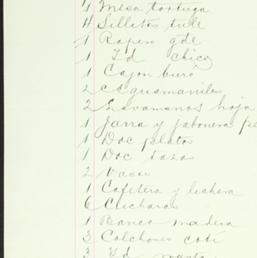 4 Mesa tortuga
4 Sillitas tule
1 Ropero gde
1 Id chico
1 Cajon buro
2 Aguamanils
2 Lavamanos hoja
1 Jarra y jabonera
1 Doc platos
1 Doc tazas
2 Vasos
1 Cafetera y lechera
6 Cucharas
1 Banco madera
3 Colchones coti
3 Id manta